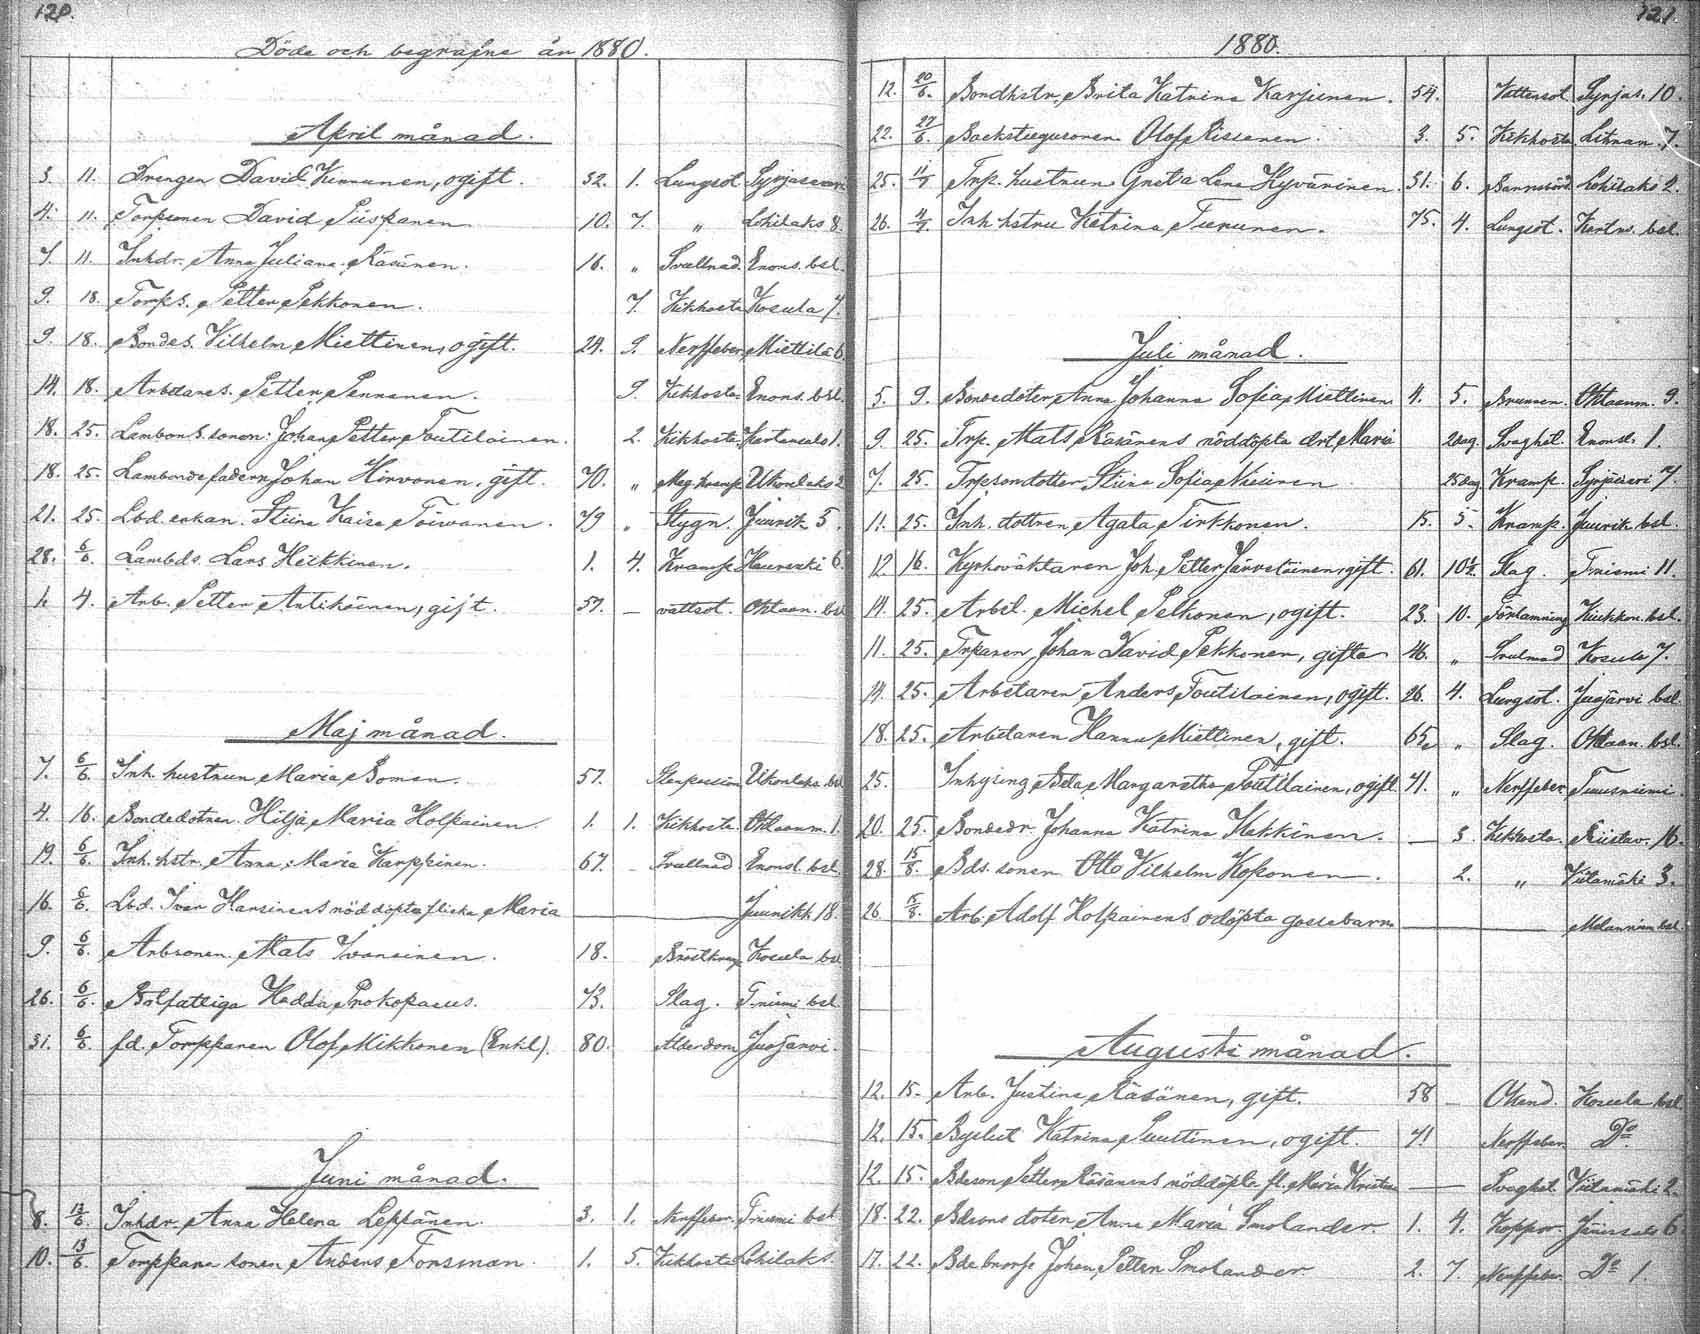 120.
Döde och begrafne år 1880.
April månad.
3. 11. Drengen David Kinnunen, ogift. 32. 1. Lungsot Syrjasaari
4. 11. Torpsonen David Piispanen 10. 7. " Lohilaks 8.
7. 11. Inhdr. Anna Juliana Räsänen. 16. " Svullnad. Enons. bsl.
9. 18. Torps. Petter Pekkonen. 7. Kikhosta Kosula 7.
9. 18. Bondes. Vilhelm Miettinen, ogift. 24. 9. Nerffeber Miettilä 6.
14. 18. Arbetares. Petter Pennanen. 9. Kikhosta. Enons. bsl.
18. 25. Lambonds.sonen: Johan Petter Toutilainen. 2. Kikhosta. Kartansalo 1.
18. 25. Lambondefadern Johan Hirvonen, gift. 70. " Mag.kramp Ukonlaks 2
21. 25. Lbd. enkan. Stiina Kaisa Toiwanen. 79 " Stygn. Juurik 5.
28. 6/6 Lambds. Lars Heikkinen. 1. 4. Kramp 6.
1. 4. Arb. Petter Antikäinen, gift. 57. — vattsot. Ohtaan. bsl
Maj månad.
7. 6/6. Inh. hustrun Maria Boman. 57. Ukonlaks bsl
4. 16. Bondedotren. Hilja Maria Holpainen. 1. 1. Kikhosta. Ohtaanm. 1.
19. 6/6 Inh. hstr. Anna Maria Karppinen. 67. — Svullnad Enonsl. bsl.
16. 6/6. Lbd. Ivar Hansinens nöddöpta flicka Maria — Juurikk 18.
9. 6/6 Arbsonen. Mats Ivansinen. 18. Kosula bsl
26. 6/6. Hedda Prokopaeus. 73. Slag. T.niemi bsl.
31. 6/6. fd. Torpparen Olof Mikkonen (Enkl). 80. Ålderdom Juojärvi.
Juni månad.
8. 13/6. Inhdr. Anna Helena Leppänen. 3. 1. Nerffeber. T.niemi bsl
10. 13/6 Torppare sonen Anders Forsman. 1. 5. Kikhosta Lohilaks.
121.
1880.
12. 20/6. Bondhstr. Brita Katrina Karjunen. 54. Vattensot Syrjas. 10.
22. 27/6. Backstugusonen Olof Rissanen. 3. 5. Kikhosta. 7.
25. 11/7 Trp. hustrun Greta Lena Hyvärinen. 31. 6. Barnsäng Lohilaks 2.
26. 4/7. Inh hstru Katrina Turunen. 75. 4. Lungsot. Kartns. bsl.
Juli månad.
5. 9. Bondedoter Anna Johanna Sofia Miettinen 4. 5. Ohtaanm. 9.
9. 25. Trp. Mats Räsänens nöddöpta drt. Maria 2dag. Svaghet. Enonsl. 1.
7. 25. Trpsondotter Stina Sofia 25dag Kramp. Syrjäsaari 7.
11. 25. Inh. dottren Agata Tirkkonen. 15. 5. Kramp. Juurik bsl.
12. 16. Kyrkoväktaren Joh. Petter Järveläinen, gift. 61. 10½. Slag. T.niemi 11.
14. 25. Arbet. Michel Pelkonen, ogift. 23. 10. Förlamning Kuikkon. bsl.
11. 25. Trparen Johan David Pekkonen, gifta 46. " Svulnad Kosula 7.
14. 25. Arbetaren Anders Toutilainen, ogift. 26. 4. Lungsot. Juojärvi bsl.
18. 25. Arbetaren Hanna Miettinen, gift. 65 " Slag. Ohtaan. bsl.
25. Inhysing Beata Margaretha Toutilainen, ogift 41. " Nerffeber Tuusniemi.
20. 25. Bondedr. Johanna Katrina Hakkinen. — 3. Kikhosta. Riistav. 16.
28. 15/8. Bds. sonen Otto Vilhelm Koponen. 2. " Viitamäki 3.
26. 15/8. Arb. Adolf Holpainens odöpta gossebarn — Melanniemi bsl.
Augusti månad.
12. 15. Arb. Justina Räsänen, gift. 58 — Okänd. Kosula bsl
12. 15. Katrina Puustinen, ogift. 41 Nerffeber Do.
12. 15. Bdeson Petter Räsänens nöddöpta fl. Maria Kristina — Svaghet. Viitamäki 2.
18. 22. Bdesons doter Anna Maria Smolander 1. 4. Koppor. 6
17. 22. Johan Petter Smolander 2. 7. Nerffeber. Do 1.